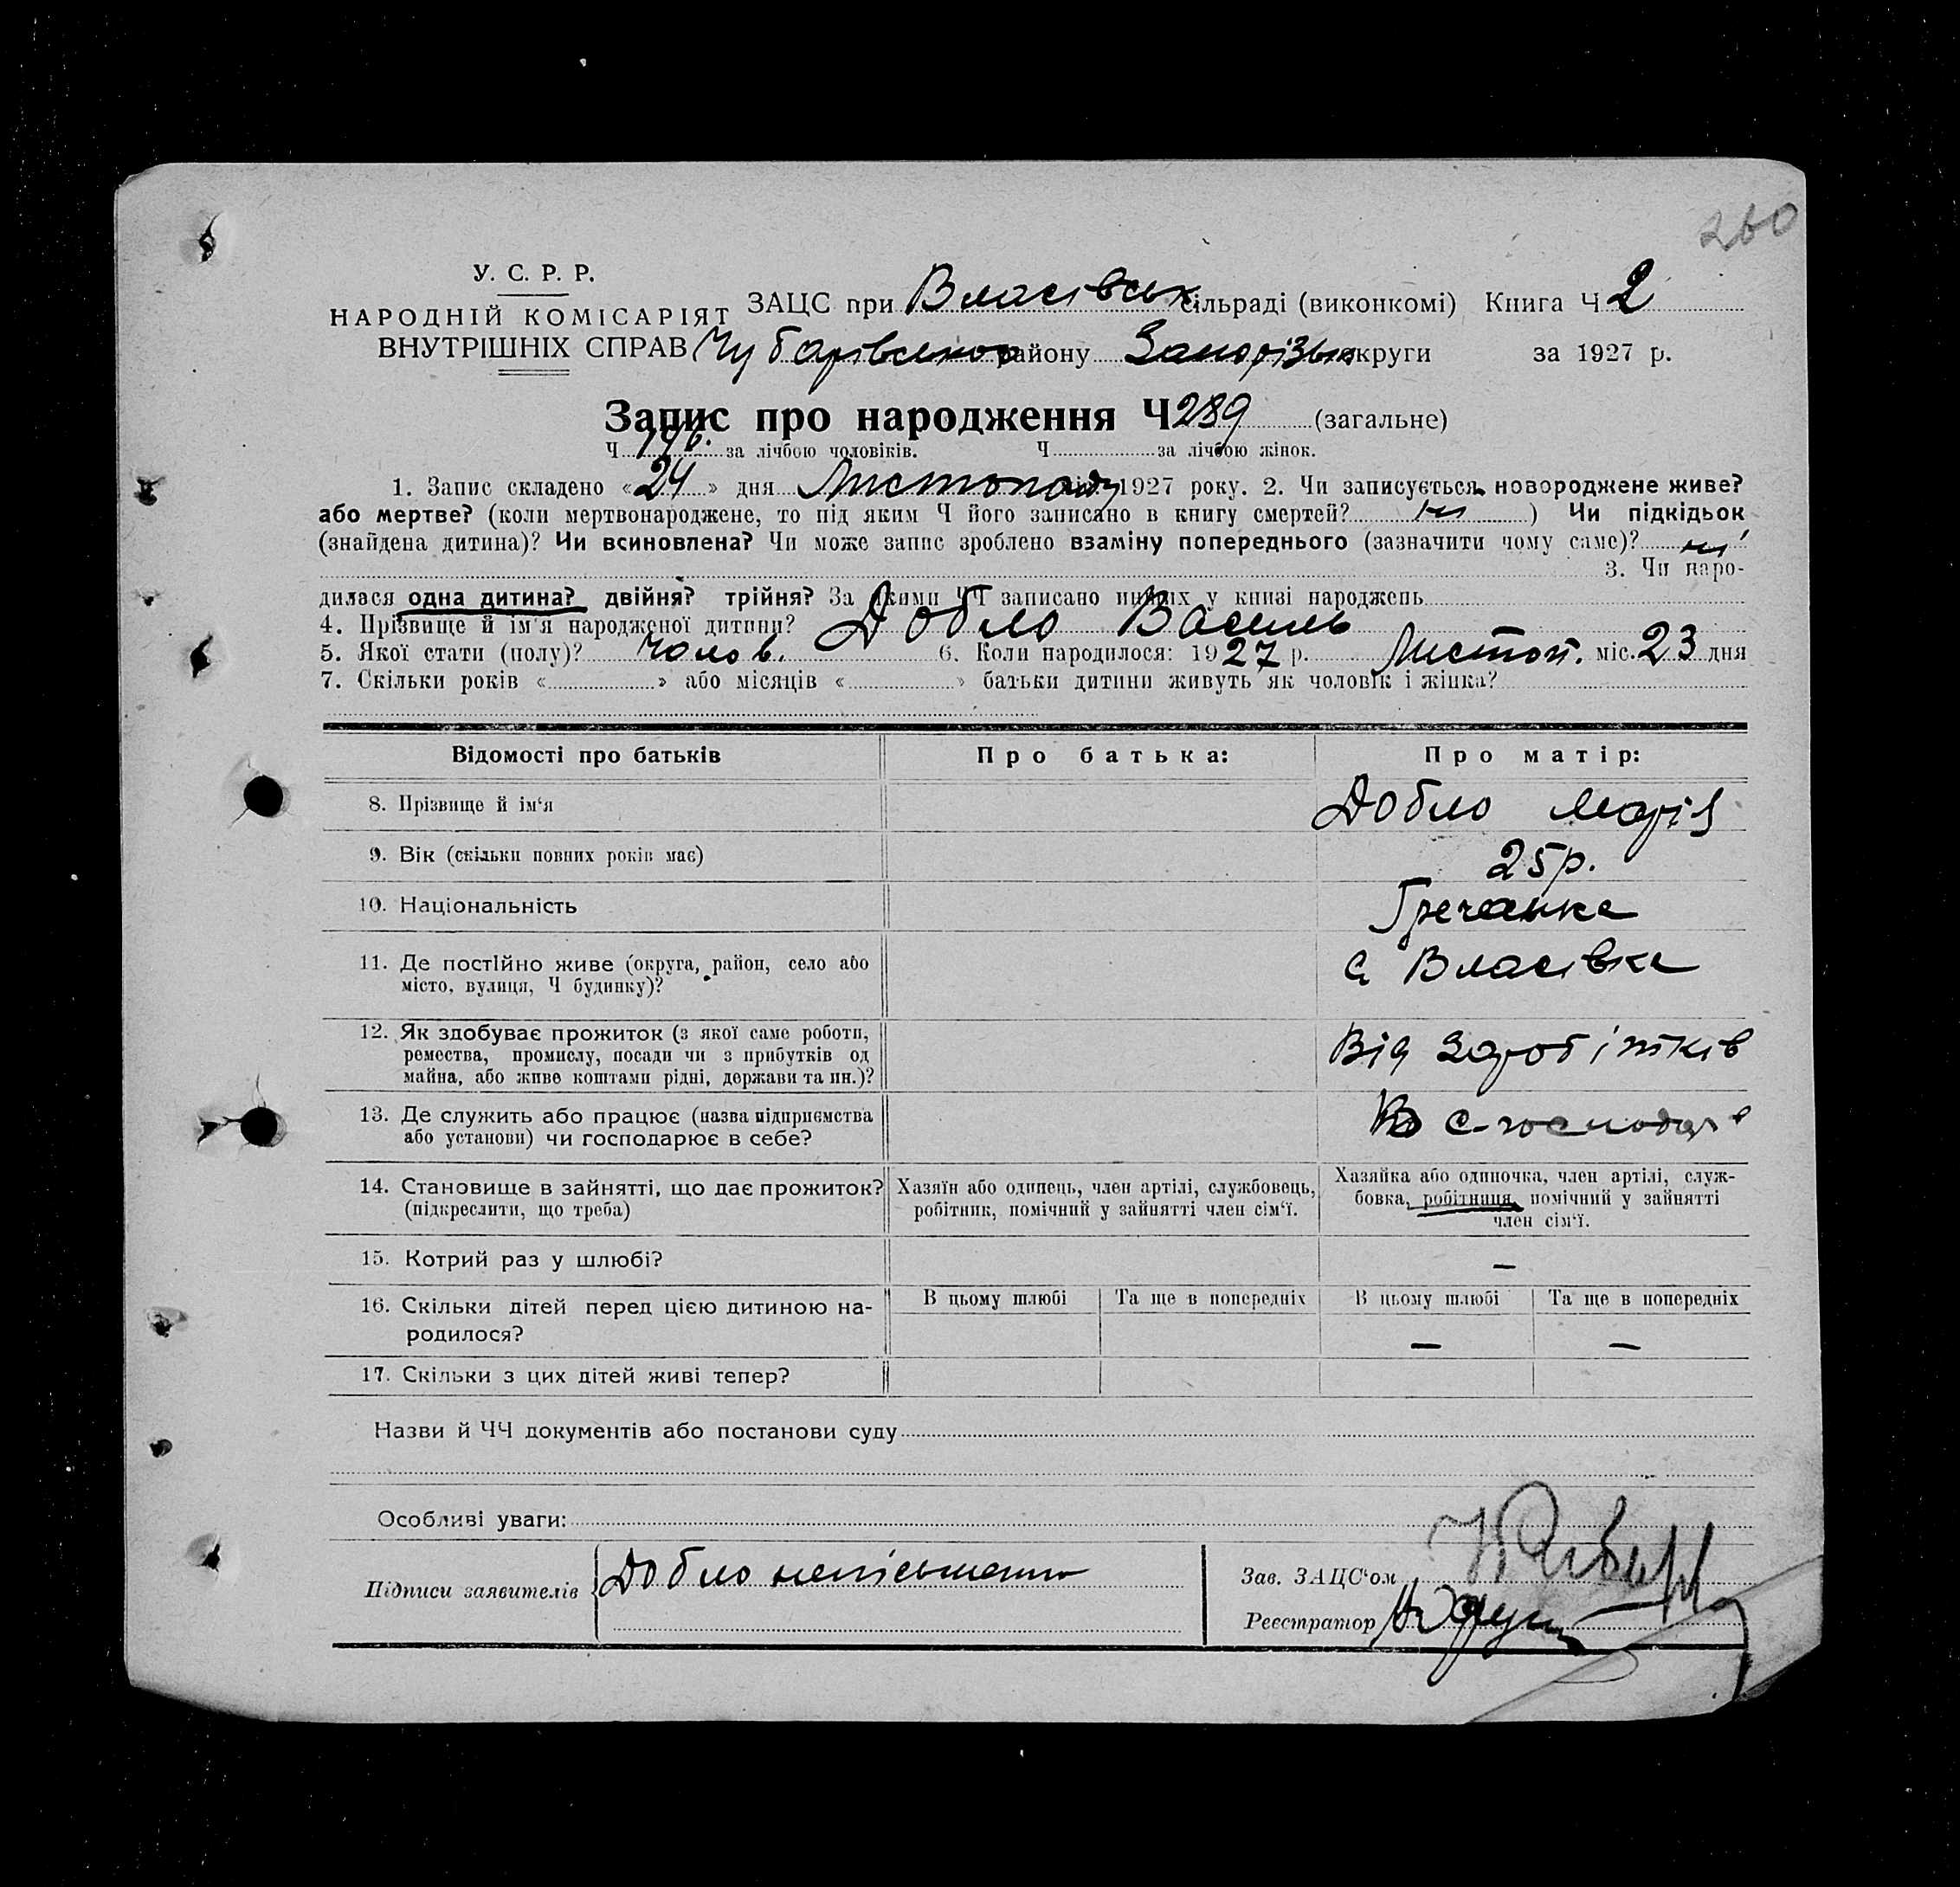 260
У. С. Р. Р.
НАРОДНІЙ КОМІСАРІЯТ
ВНУТРІШНІХ СПРАВ
ЗАЦС при Власівськ сільраді (виконкомі) Книга Ч 2
Чубарівського району Запорізьк округи за 1927 р.
Запис про народження Ч 289 (загальне)
Ч 146. за лічбою чоловіків. Ч за лічбою жінок.
1. Запис складено «24» дня Листопаду 1927 року. 2. Чи записується новороджене живе?
або мертве? (коли мертвонароджене, то під яким Ч його записано в книгу смертей? ні ) Чи підкідьок
(знайдена дитина)? Чи всиновлена? Чи може запис зроблено взаміну попереднього (зазначити чому саме)? ні
3. Чи наро-
дилася одна дитина? двійня? трійня? За якими ЧЧ записано инших у книзі народжень
4. Прізвище й ім'я народженої дитини? Добло Василь
5. Якої стати (полу)? Чолов. 6. Коли народилося: 1927 р. Листоп. міс. 23 дня
7. Скільки років « » або місяців « » батьки дитини живуть як чоловік і жінка?
Відомості про батьків Про батька: Про матір:
8. Прізвище й ім‘я Добло Марія
9. Вік (скільки повних років має) 25 р.
10. Національність Гречанка
11. Де постійно живе (округа, район, село або
місто, вулиця, Ч будинку)? с Власівка
12. Як здобуває прожиток (з якої саме роботи,
ремества, промислу, посади чи з прибутків од
майна, або живе коштами рідні, держави та ин.)? Від заробітків
13. Де служить або працює (назва підприємства
або установи) чи господарює в себе? В с-господар
14. Становище в зайнятті, що дає прожиток?
(підкреслити, що треба)
Хазяїн або одинець, член артілі, службовець,
робітник, помічний у зайнятті член сім‘ї.
Хазяйка або одиночка, член артілі, служ-
бовка, робітниця, помічний у зайнятті
член сім‘ї.
15. Котрий раз у шлюбі? —
16. Скільки дітей перед цією дитиною на-
родилося?
В цьому шлюбі Та ще в попередніх В цьому шлюбі Та ще в попередніх
— —
17. Скільки з цих дітей живі тепер?
Назви й ЧЧ документів або постанови суду
Особливі уваги:
Підписи заявителів Добло неписьменна
Зав. ЗАЦС‘ом
Реєстратор